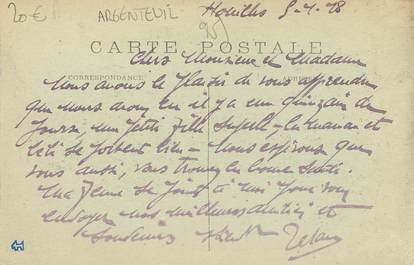 20€ ARGENTEUIL Houilles 5-4-18
95
CARTE POSTALE
Chers Monsieur et Madame
CORRESPONDANCE
Nous avons le plaisir de vous apprendre
que nous avons eu il y a une quinzaine de
jours, une petite fille superbe - la maman et
bébé se portent bien - Nous espérons que
vous aussi, vous trouvez en bonne santé.
Ma femme se joint à moi pour vous
envoyer nos meilleures amitiés et
souvenirs